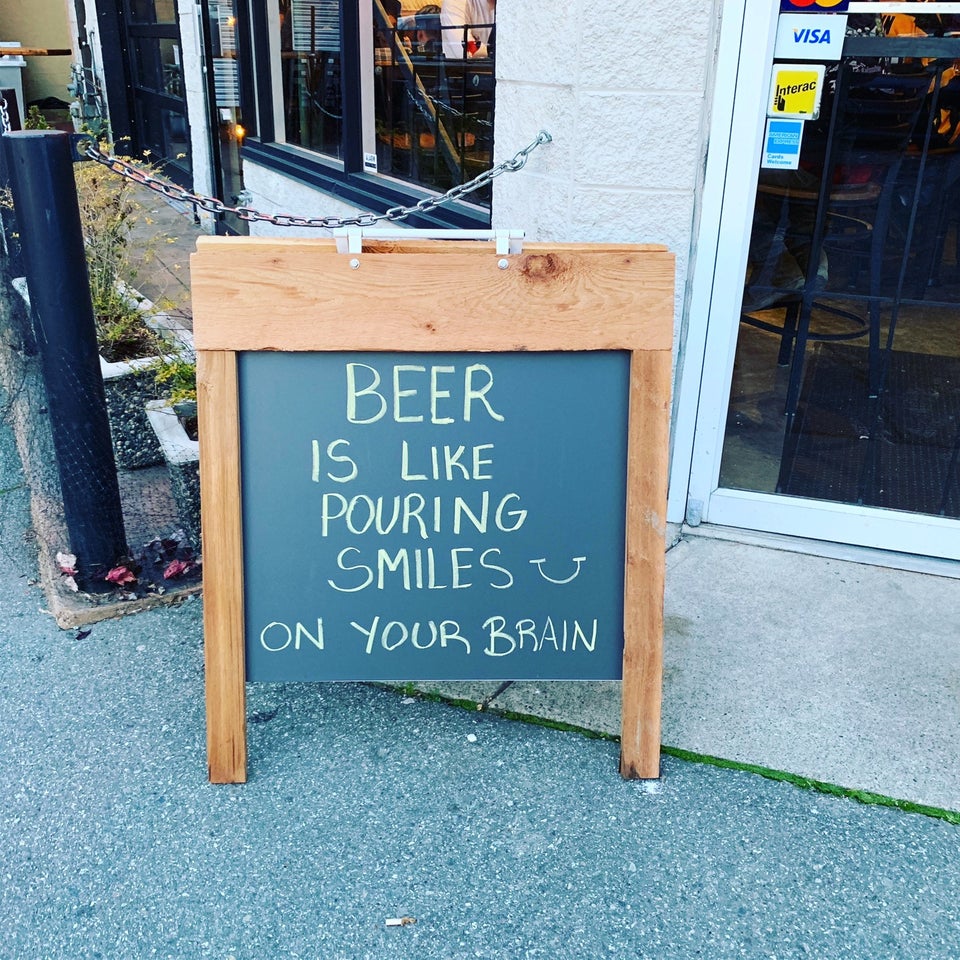 VISA
Interac
AMERICAN EXPRESS
Cards
Welcome
BEER
IS LIKE
POURING
SMILES
ON YOUR BRAIN